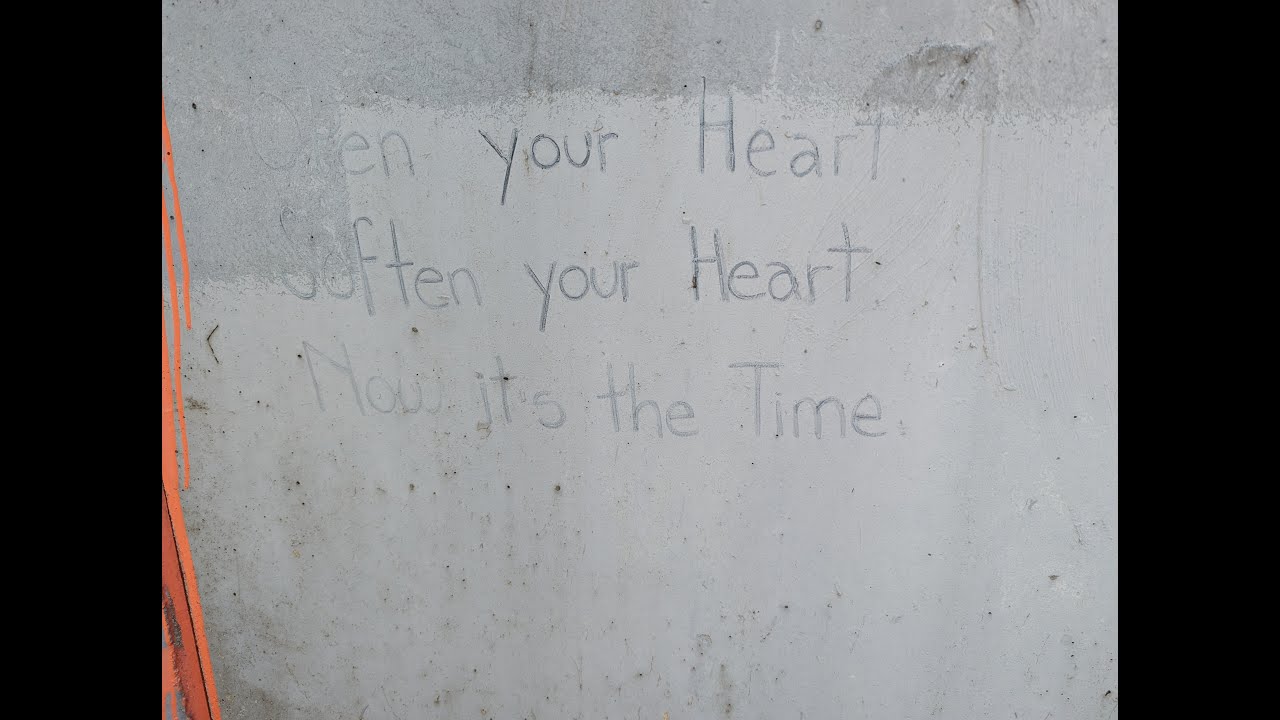 Open your Heart
Soften your Heart
Now it's the Time.